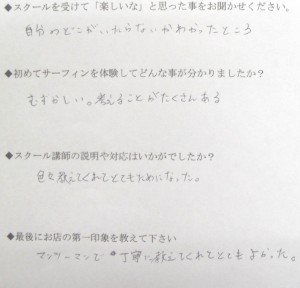 ◆スクールを受けて「楽しいな」と思った事をお聞かせください。
自分のどこがいけないかわかったところ
◆初めてサーフィンを体験してどんな事が分かりましたか？
むずかしい。考えることがたくさんある
◆スクール講師の説明や対応はいかがでしたか？
色々教えてくれてとてもためになった。
◆最後にお店の第一印象を教えて下さい
マンツーマンで丁寧に教えてくれてとてもよかった。